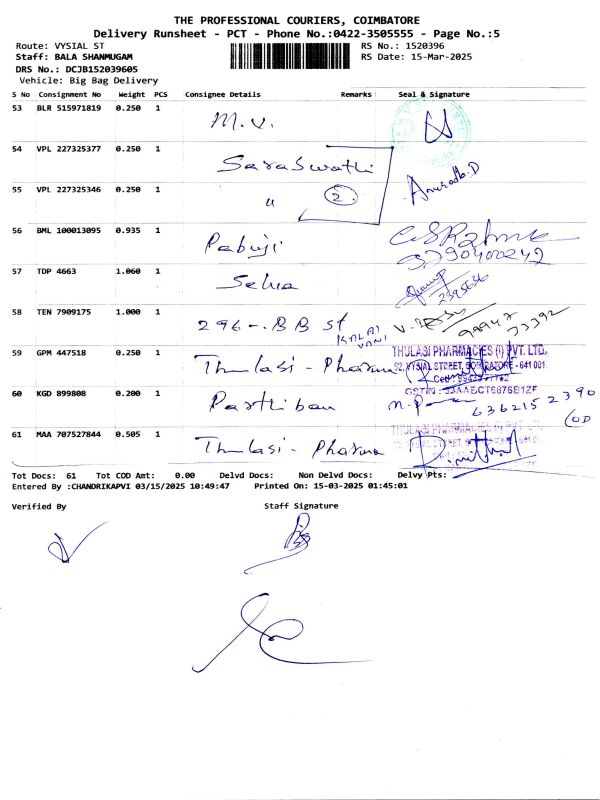 THE PROFESSIONAL COURIERS, COIMBATORE
Delivery Runsheet - PCT - Phone No.:0422-3505555 - Page No.:5
Route: VYSIAL ST RS No.: 1520396
Staff: BALA SHANMUGAM RS Date: 15-Mar-2025
DRS No.: DCJB152039605
Vehicle: Big Bag Delivery
S No Consignment No Weight PCS Consignee Details Remarks Seal & Signature
53 BLR 515971819 0.250 1 M.V.
54 VPL 227325377 0.250 1 Saraswathi
55 VPL 227325346 0.250 1 " 2. Anuradha.D
56 BML 100013095 0.935 1 Pabuji
57 TDP 4663 1.060 1 Selva
58 TEN 7909175 1.000 1 296 - BB St KALAI VANI
59 GPM 447518 0.250 1 Thulasi - Pharma THULASI PHARMACIES (I) PVT. LTD.
60 KGD 899808 0.200 1 Parthiban 6362152390
COD
61 MAA 707527844 0.505 1 Thulasi - Pharma
Tot Docs: 61 Tot COD Amt: 0.00 Delvd Docs: Non Delvd Docs: Delvy Pts:
Entered By :CHANDRIKAPVI 03/15/2025 10:49:47 Printed On: 15-03-2025 01:45:01
Verified By Staff Signature